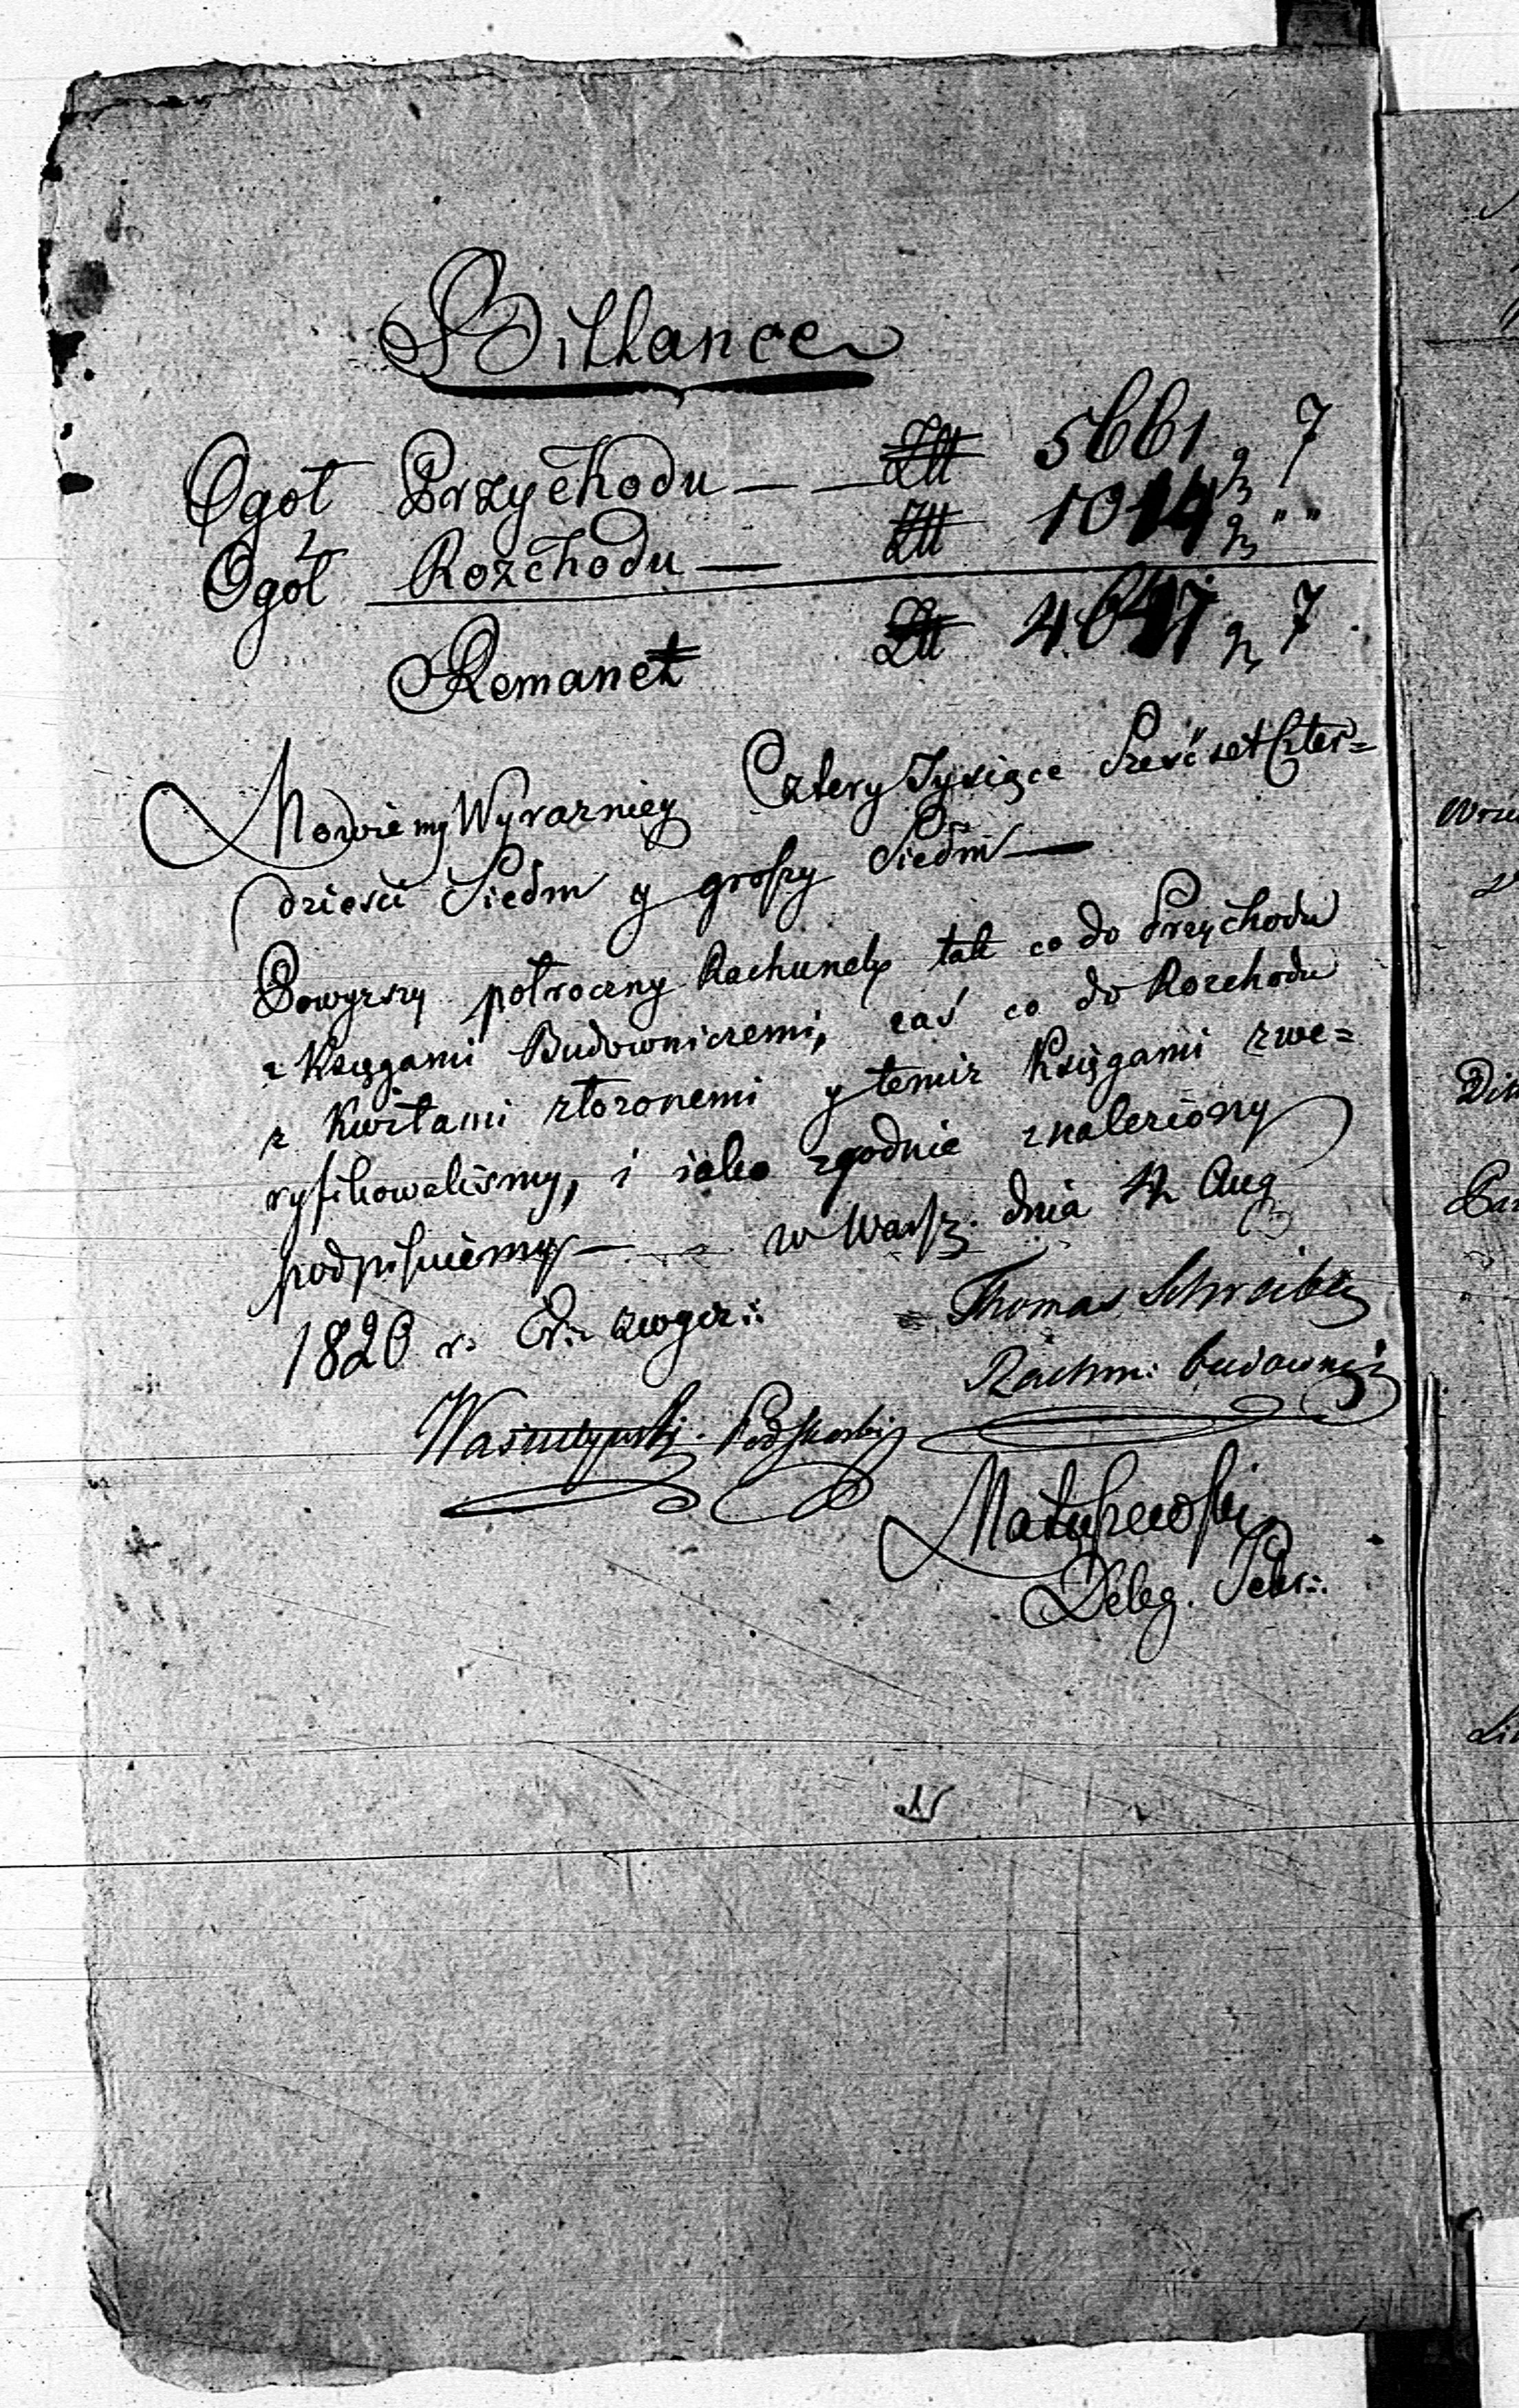 Billance
Ogół Przychodu — — Złt 5661 gr 7
Ogół Rozchodu — Złt 1014 gr " "
Remanet Złt 4647 gr 7
Mowiemy Wyrazniey Cztery Tysiące Sześćset Czter=
dziesci Siedm y groszy Siedm —
Powyzszy połroczny Rachunek tak co do Przychodu
z Księgami Budowniczemi, zaś co do Rozchodu
z Kwitami złozonemi y temiz Księgami zwe=
ryfikowalismy, i iako zgodnie znaleziony
podpisuiemy — w Warsz. dnia Aug
1820 r.
Thomas Schreiber
Rachm: budowniczy
Podskarbi
Matuszewski
Deleg.